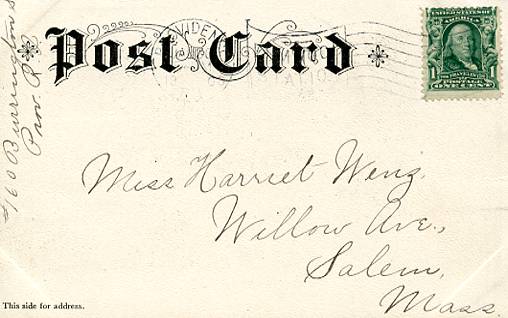 Post Card
UNITED STATES OF AMERICA
1 1
POSTAGE
ONE CENT
#160 Burrington S
Prov. R.I.
Miss Harriet Weng.
Willow Ave.,
Salem,
Mass.
This side for address.